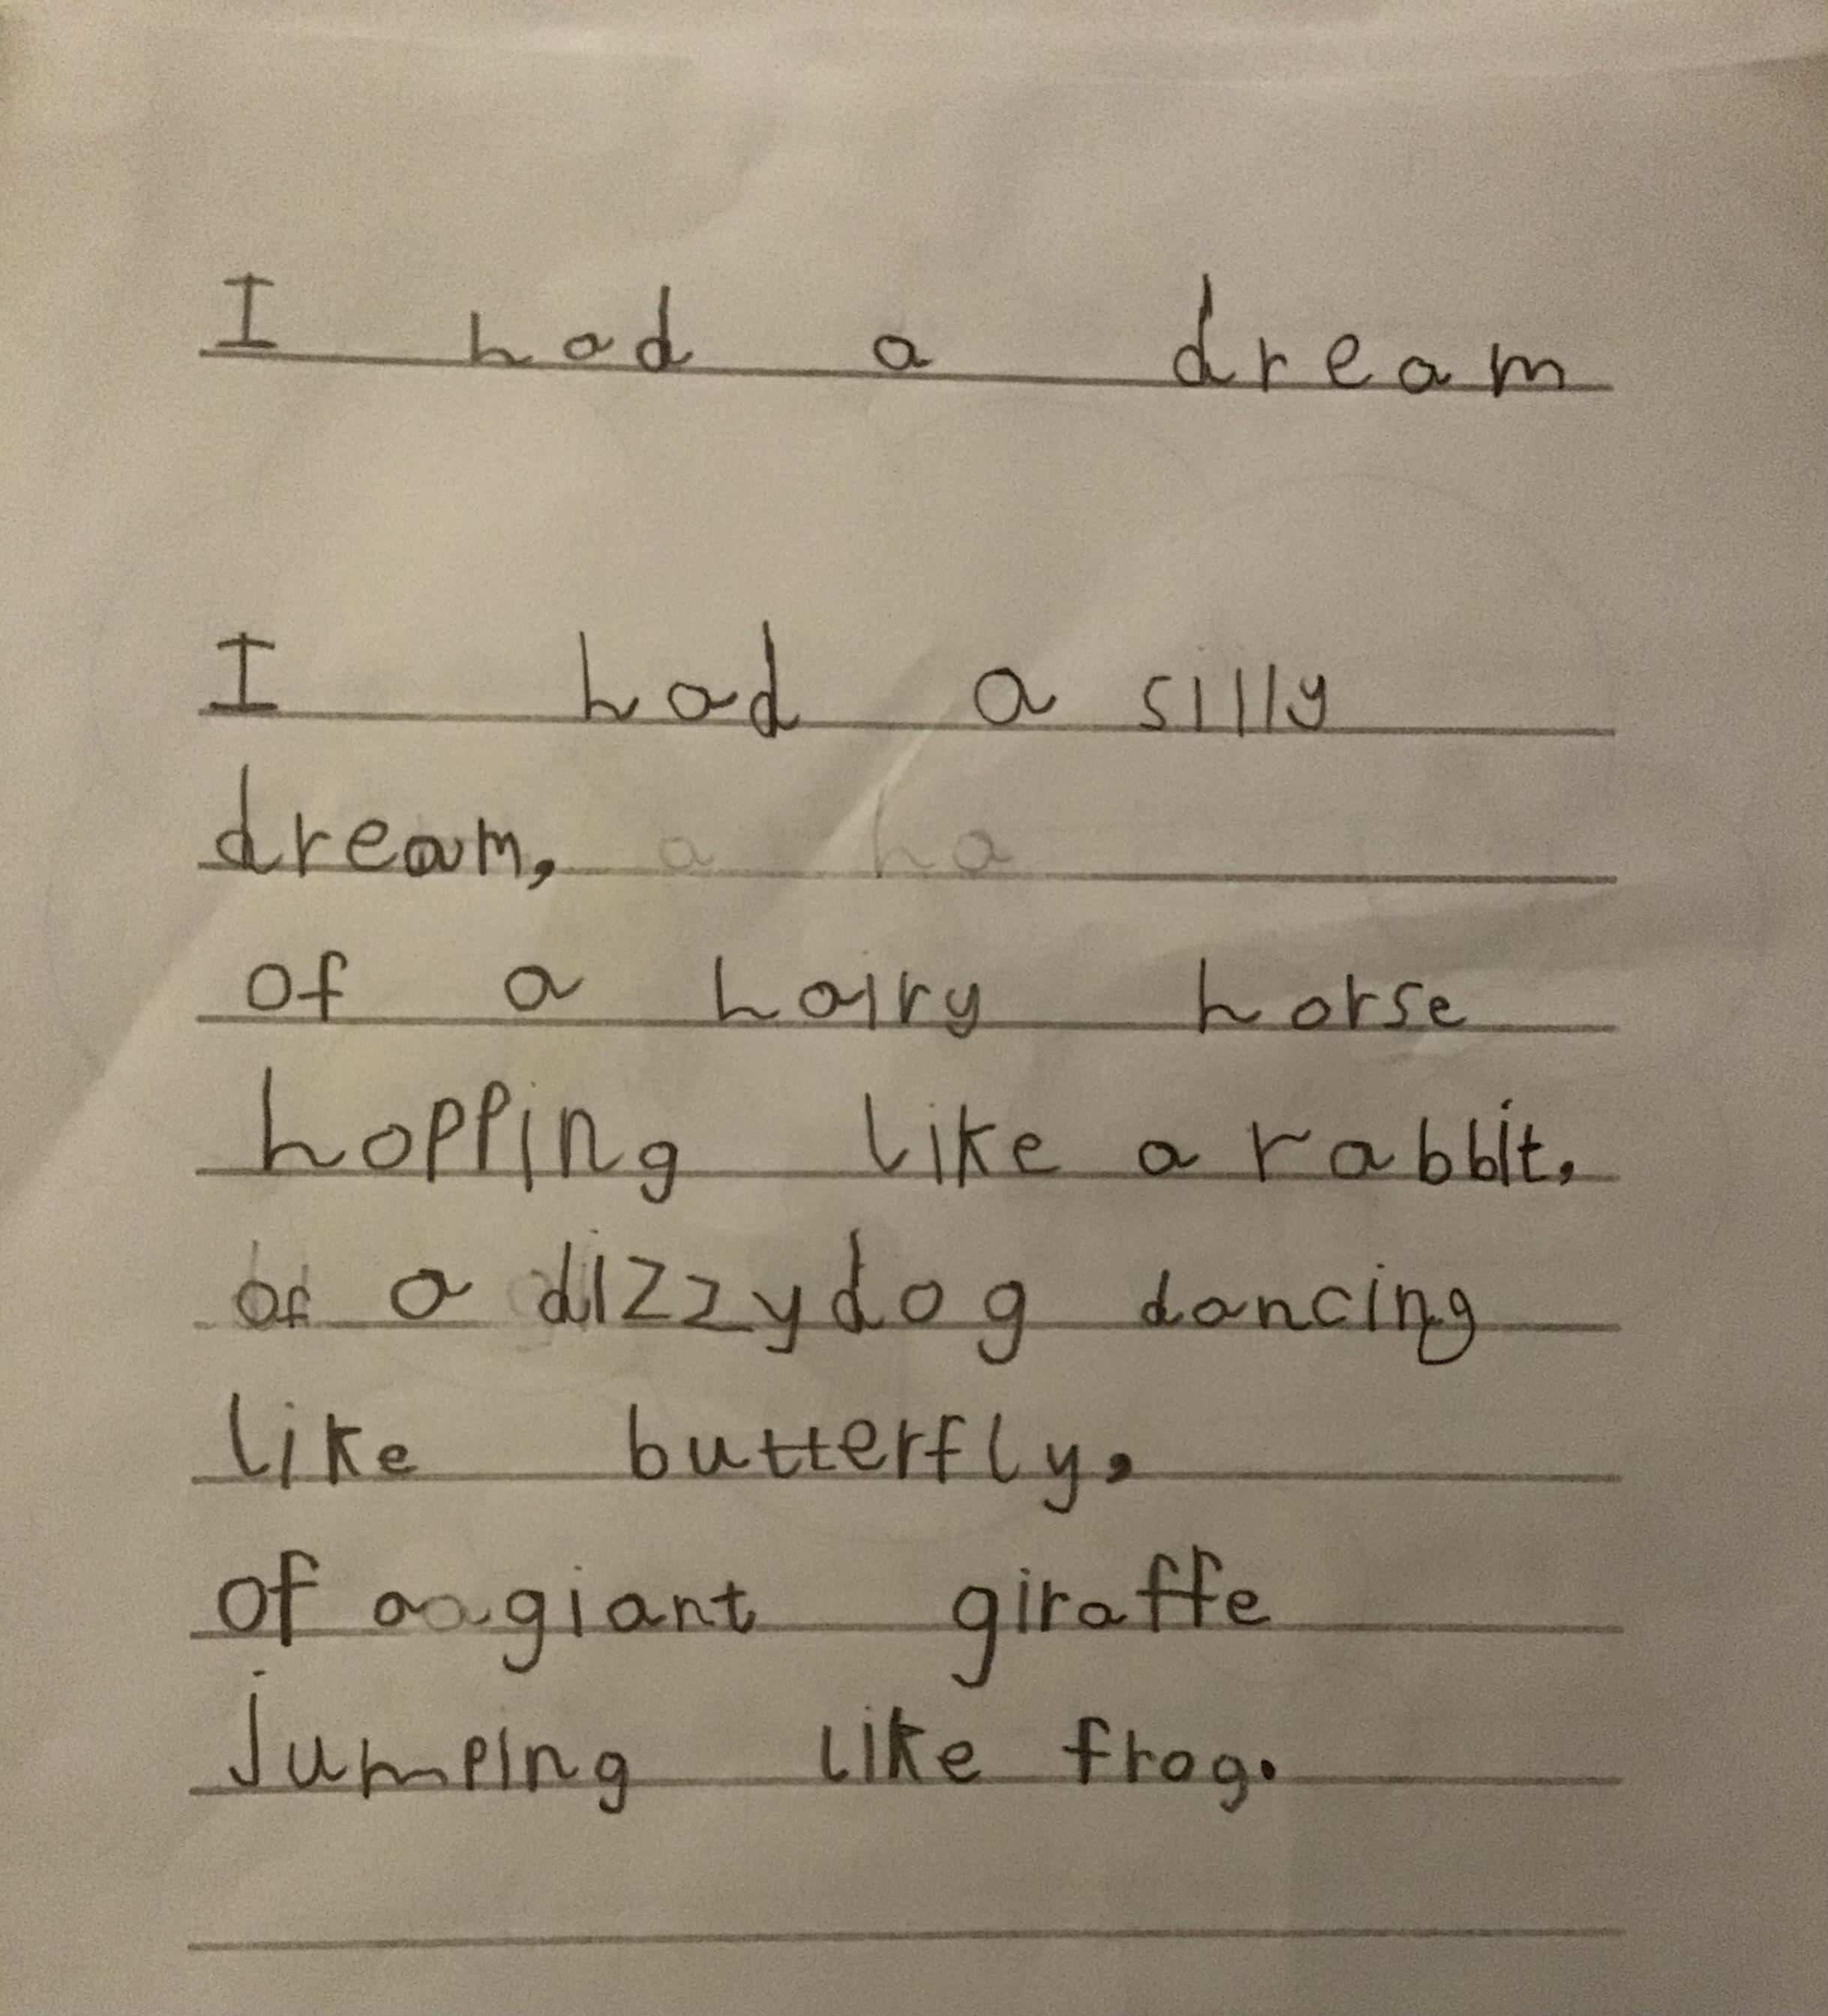 I had a dream
I had a silly
dream,
of a hairy horse
hopping like a rabbit,
of a dizzy dog dancing
like butterfly,
of a giant giraffe
jumping like frog.